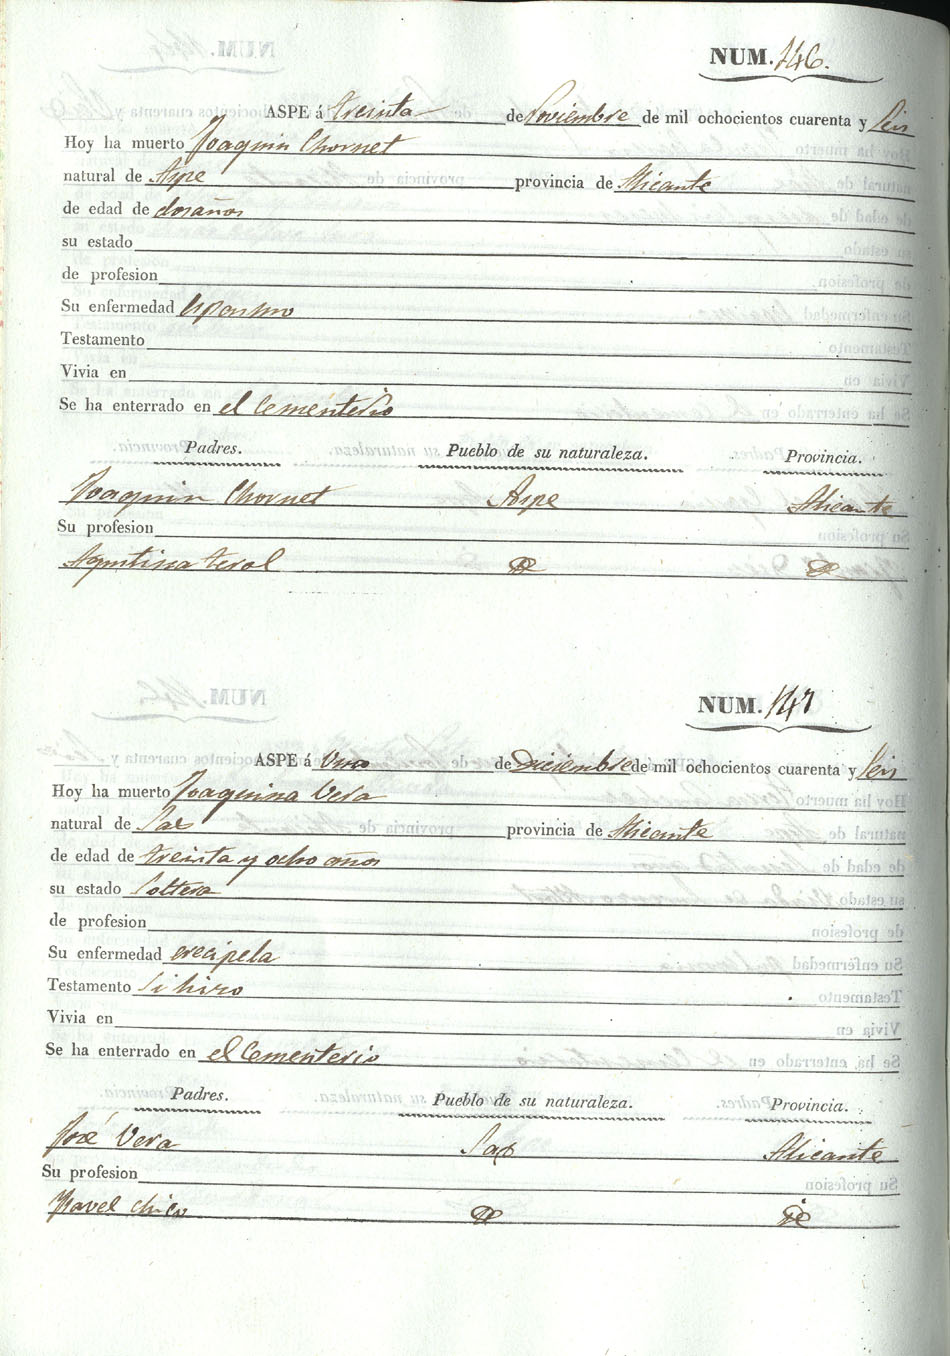 NUM. 146.
ASPE á treinta de Noviembre de mil ochocientos cuarenta y Seis
Hoy ha muerto Joaquin Chornet
natural de Aspe provincia de Alicante
de edad de dos años
su estado
de profesion
Su enfermedad Espasmo
Testamento
Vivia en
Se ha enterrado en el Cementerio
Padres. Pueblo de su naturaleza. Provincia.
Joaquin Chornet Aspe Alicante
Su profesion
Agustina Terol
NUM. 147
ASPE á Uno de Diciembre de mil ochocientos cuarenta y Seis
Hoy ha muerto Joaquina Vera
natural de Sax provincia de Alicante
de edad de treinta y ocho años
su estado Soltera
de profesion
Su enfermedad erecipela
Testamento Si hizo
Vivia en
Se ha enterrado en el Cementerio
Padres. Pueblo de su naturaleza. Provincia.
José Vera Sax Alicante
Su profesion
Ysavel Chico